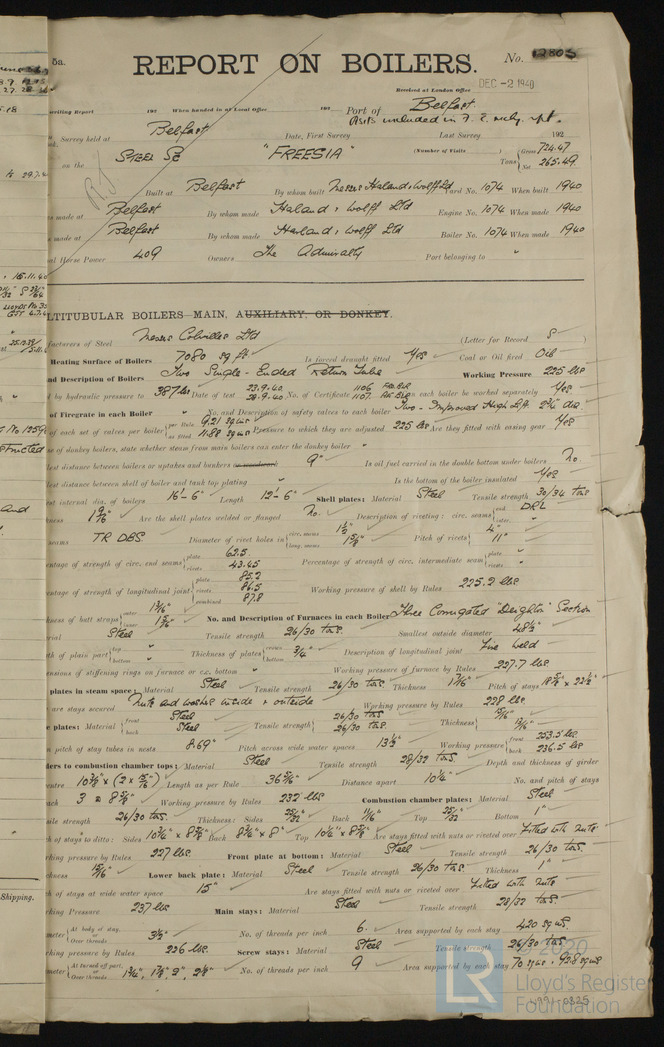 5a.
REPORT ON BOILERS.
No. 12805
Received at London Office
DEC -2 1940
writing Report 192 When handed in at Local Office 192 Port of Belfast
Visits included in F.E. mchy. rpt.
Survey held at Belfast Date, First Survey Last Survey 192
on the STEEL SC "FREESIA" (Number of Visits ) Tons { Gross 724.47 Net 265.49
Built at Belfast By whom built Messrs Harland & Wolff Ltd Yard No. 1074 When built 1940
s made at Belfast By whom made Harland & Wolff Ltd Engine No. 1074 When made 1940
s made at Belfast By whom made Harland & Wolff Ltd Boiler No. 1074 When made 1940
al Horse Power 409 Owners The Admiralty Port belonging to "
LTITUBULAR BOILERS—MAIN, AUXILIARY, OR DONKEY.
facturers of Steel Messrs Colvilles Ltd (Letter for Record S )
Heating Surface of Boilers 7080 sq ft Is forced draught fitted Yes Coal or Oil fired Oil
nd Description of Boilers Two Single-Ended Return Tube Working Pressure 225 lbs
d by hydraulic pressure to 387 lbs Date of test 23.9.40 28.9.40 No. of Certificate 1106 1107 Can each boiler be worked separately Yes
of Firegrate in each Boiler " No. and Description of safety valves to each boiler Two - Improved High Lift 2¾" dia.
of each set of valves per boiler { per Rule 9.21 sq ins as fitted 11.88 sq ins Pressure to which they are adjusted 225 lbs Are they fitted with easing gear Yes
se of donkey boilers, state whether steam from main boilers can enter the donkey boiler "
lest distance between boilers or uptakes and bunkers or woodwork 9" Is oil fuel carried in the double bottom under boilers No
lest distance between shell of boiler and tank top plating Is the bottom of the boiler insulated Yes
est internal dia. of boilers 16'-6" Length 12'-6" Shell plates: Material Steel Tensile strength 30/34 tons
ness 1 9/16" Are the shell plates welded or flanged No. Description of riveting: circ. seams { end DRL inter. "
seams TR DBS. Diameter of rivet holes in { circ. seams 1½" long. seams 1⅝" Pitch of rivets { 4" 11"
entage of strength of circ. end seams { plate 62.5 rivets 43.45 Percentage of strength of circ. intermediate seam { plate " rivets "
entage of strength of longitudinal joint { plate 85.2 rivets 86.5 combined 87.8 Working pressure of shell by Rules 225.2 lbs
ness of butt straps { outer 1 3/16" inner 1 5/16" No. and Description of Furnaces in each Boiler Three Corrugated "Deighton" Section
rial Steel Tensile strength 26/30 tons. Smallest outside diameter 48½"
th of plain part { top " bottom " Thickness of plates { crown bottom ¾" Description of longitudinal joint Fire Weld
ensions of stiffening rings on furnace or c.c. bottom " Working pressure of furnace by Rules 227.7 lbs
plates in steam space: Material Steel Tensile strength 26/30 tons. Thickness 1 7/16" Pitch of stays 18⅝" x 22½"
are stays secured Nuts and washers inside & outside Working pressure by Rules 228 lbs
e plates: Material { front Steel back Steel Tensile strength { 26/30 tons 26/30 tons. Thickness { 15/16" 13/16"
n pitch of stay tubes in nests 8.69" Pitch across wide water spaces 13½" Working pressure { front 253.5 lbs back 236.5 lbs
ders to combustion chamber tops: Material Steel Tensile strength 28/32 tons. Depth and thickness of girder
entre 10⅞" x (2 x 15/16") Length as per Rule 36 5/16" Distance apart 10¼" No. and pitch of stays
ach 3 @ 8⅝" Working pressure by Rules 232 lbs Combustion chamber plates: Material Steel
sile strength 26/30 tons. Thickness: Sides 25/32" Back 11/16" Top 25/32" Bottom 1"
ch of stays to ditto: Sides 10¾" x 8⅞" Back 8¾" x 8" Top 10¼" x 8⅝" Are stays fitted with nuts or riveted over Fitted with Nuts
king pressure by Rules 227 lbs. Front plate at bottom: Material Steel Tensile strength 26/30 tons.
kness 15/16" Lower back plate: Material Steel Tensile strength 26/30 tons. Thickness 1"
h of stays at wide water space 15" Are stays fitted with nuts or riveted over Fitted with Nuts
king Pressure 237 lbs Main stays: Material Steel Tensile strength 28/32 tons.
meter { At body of stay, or Over threads 3½" No. of threads per inch 6. Area supported by each stay 420 sq ins.
king pressure by Rules 226 lbs. Screw stays: Material Steel Tensile strength 26/30 tons
meter { At turned off part, or Over threads 1¾", 1⅞", 2", 2⅛" No. of threads per inch 9 Area supported by each stay 70 sq ins. & 92.8 sq ins
Shipping.
LR
2020
Lloyd's Register
Foundation